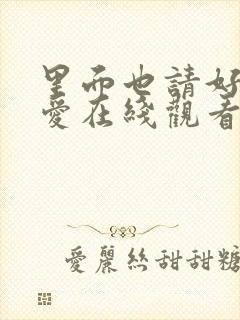 里而也請好
愛在綫觀看
愛麗絲甜甜糖